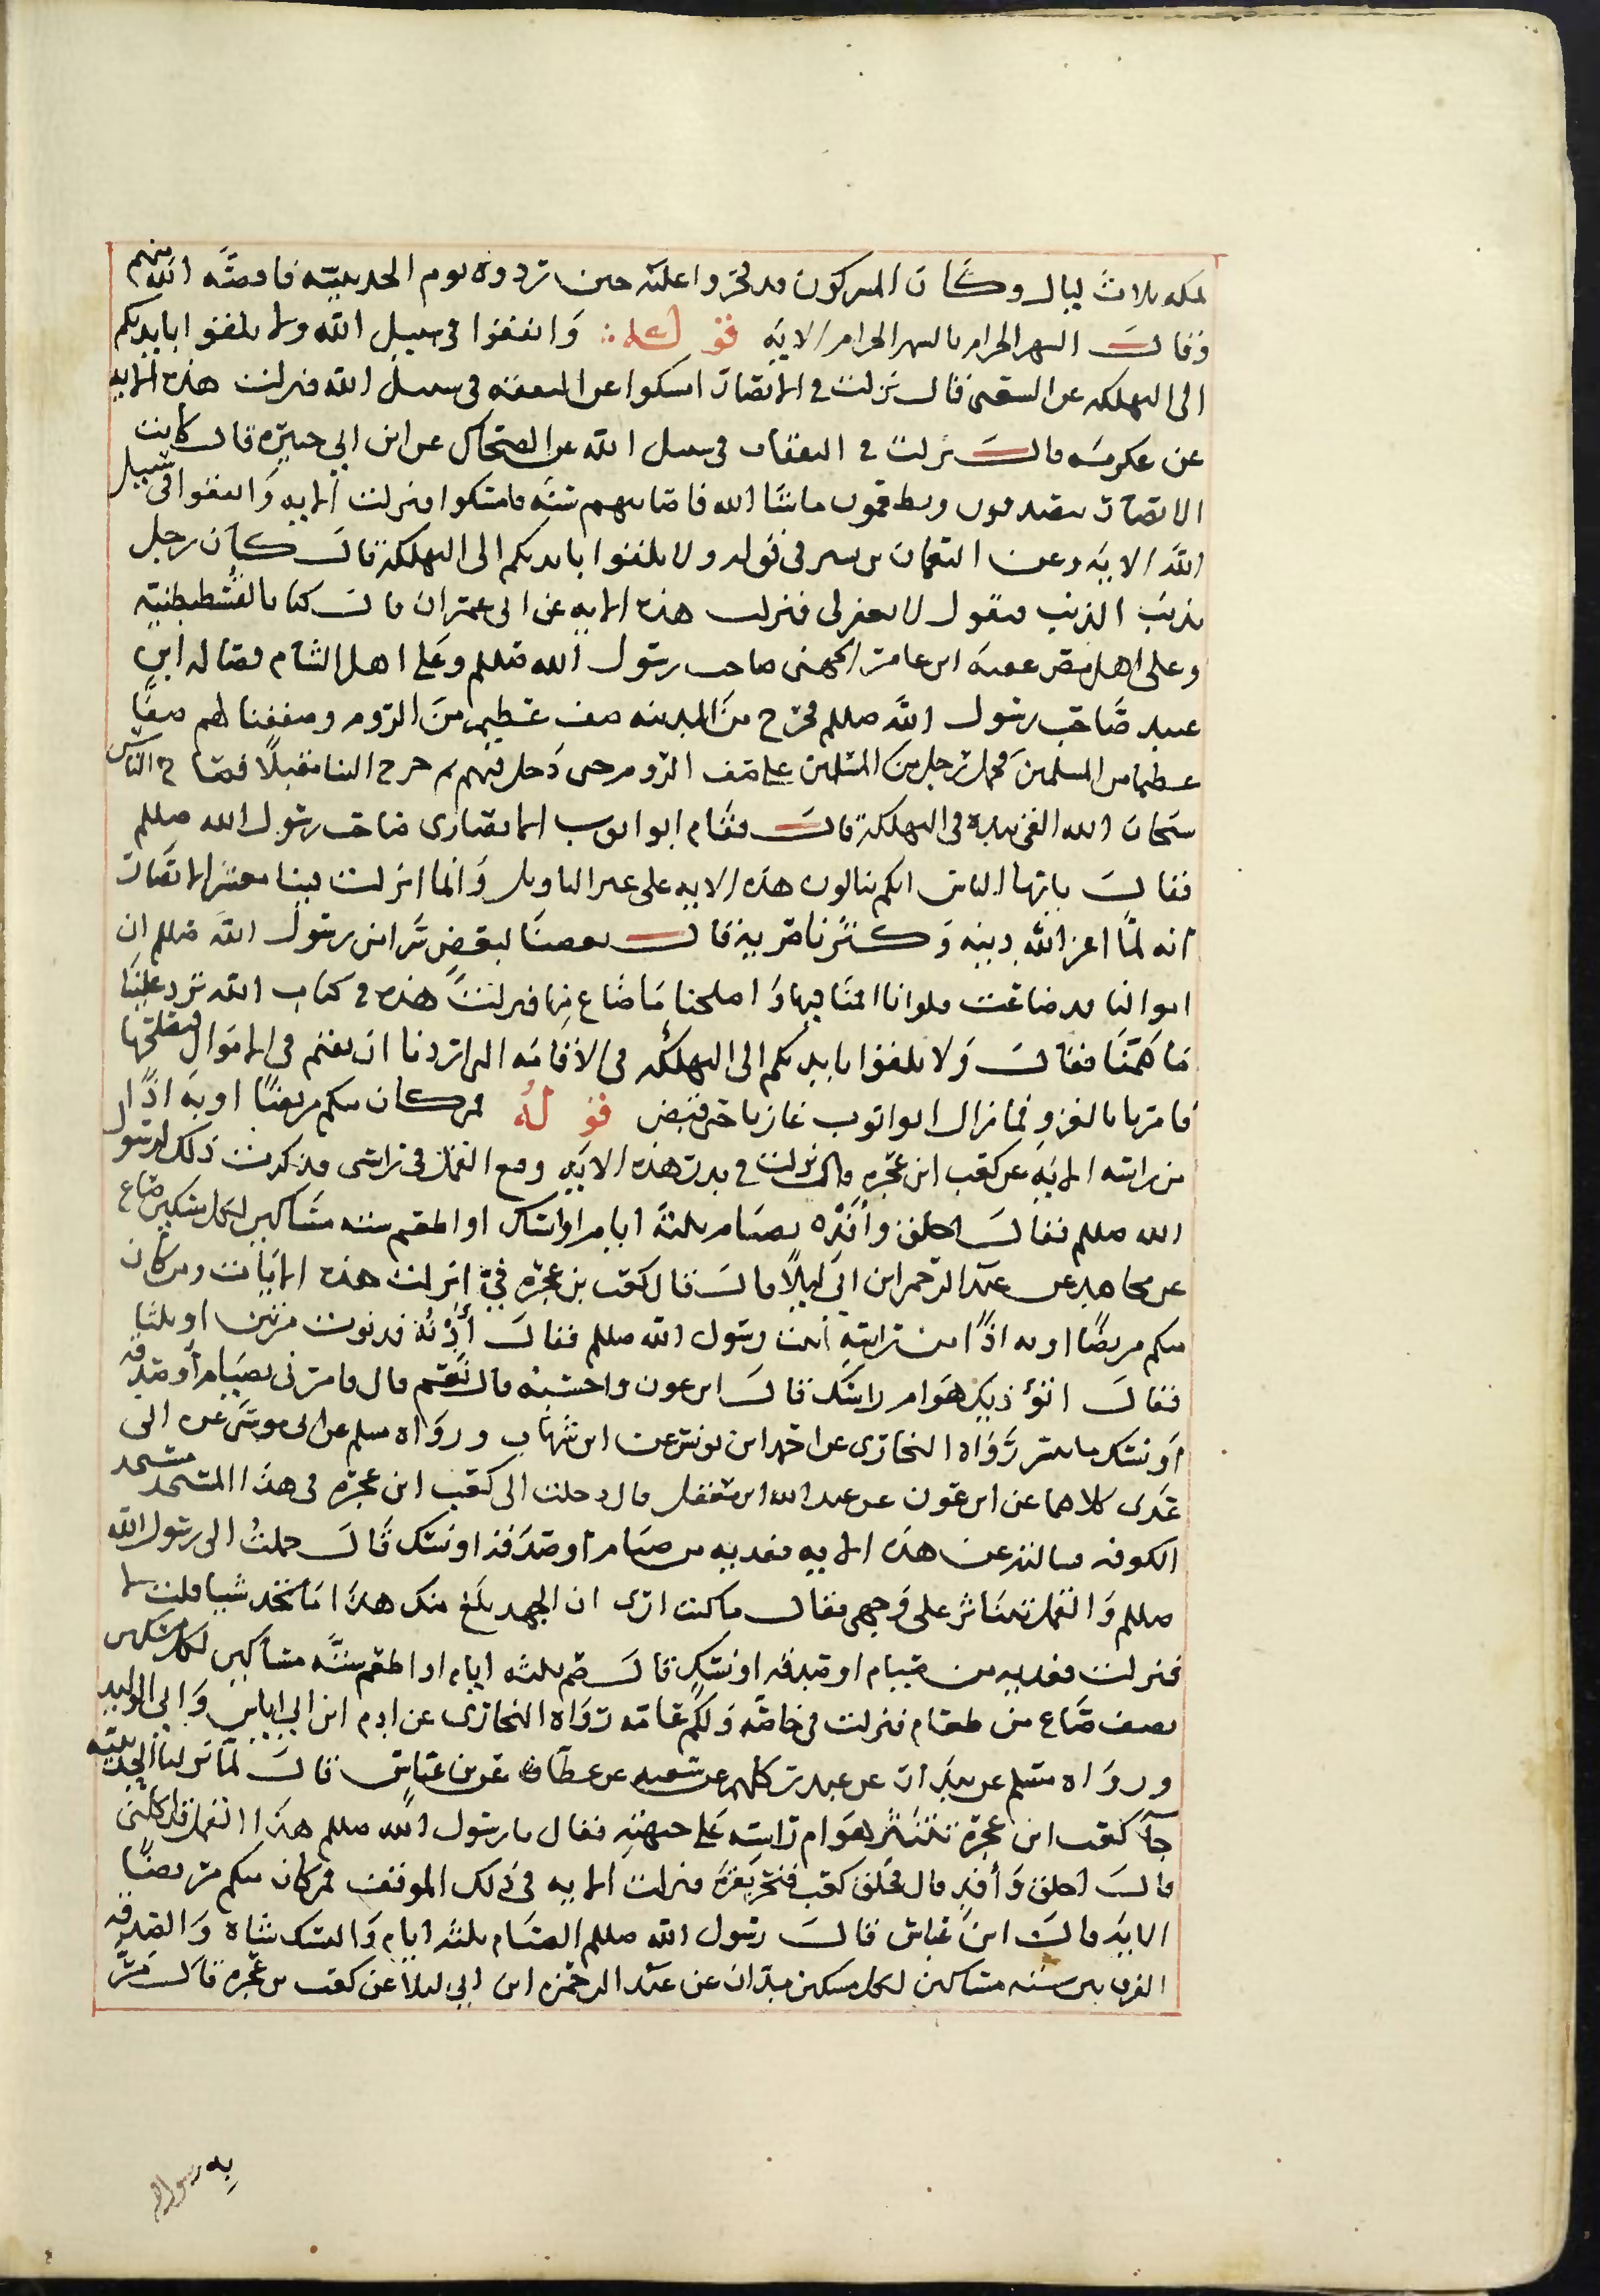 بمكه ثلاث ليال وكان المشركون قد فخروا عليه حين تردوه يوم الحديبيه فاقصّه الله منهم
وقال الشهر الحرام بالشهر الحرام الايه قوله وانفقوا في سبيل الله ولا تلقوا بايديكم
الى التهلكه عن الشعبي قال نزلت في الانصار امسكوا عن النفقه في سبيل الله فنزلت هذه الايه
عن عكرمه قال نزلت في النفقات في سبيل الله عن الضحاك عن ابن ابي جبيره قال كانت
الانصار يتصدقون ويطعمون ما شا الله فاصابهم سنه فامسكوا فنزلت الايه وانفقوا في سبيل
الله الايه وعن النعمان بن بشير في قوله ولا تلقوا بايديكم الى التهلكة قال كان رجل
يذنب الذنب فيقول لا يغفر لي فنزلت هذه الايه عن ابي عمران قال كنا بالقسطنطنيه
وعلى اهل مصر عقبه ابن عامر الجهني صاحب رسول الله صللم وعلى اهل الشام فضاله ابن
عبيد صاحب رسول الله صللم فخرج من المدينه صف عظيم من الروم وصففنا لهم صفًا
عظيما من المسلمين فحمل رجل من المسلمين على صف الروم حتى دخل فيهم ثم خرج الينا مقبلًا فصاح الناس
سبحان الله القى بيده في التهلكة قال فقام ابو ايوب الانصاري صاحب رسول الله صللم
فقال يا ايها الناس انكم تتاولون هذه الايه على غير التاويل وانما انزلت فينا معشر الانصار
انه لمّا اعز الله دينه وكثر ناصريه قال بعضنا لبعض سرا من رسول الله صللم ان
اموالنا قد ضاعت فلو انا اقمنا فيها واصلحنا ما ضاع منها فنزلت هذه في كتاب الله ترد علينا
ما هممنا فقال ولا تلقوا بايديكم الى التهلكه في الاقامه التي اردنا ان نقيم في الاموال فنصلحها
فامرنا بالغزو فما زال ابو ايوب غازيا حتى قبض قوله فمن كان منكم مريضًا او به اذًا
من راسه الايه عن كعب ابن عجره قال نزلت هذه الايه وقع القمل في راسي فذكرت ذلك لرسول
الله صللم فقال احلق وافده بصيام ثلثه ايام او انسك او اطعم سته مساكين لكل مسكين صاع
عن مجاهد عن عبد الرحمن ابن ابي ليلًا قال قال كعب بن عجره فيّ انزلت هذه الايات ومن كان
منكم مريضًا او به اذًا من راسه أتيت رسول الله صللم فقال أدنه فدنوت مرتين او ثلثا
فقال اتؤذيك هوام راسك قال ابن عون واحسبه قال نعم قال فامرني بصيام أو صدقه
او نسك ما تيسر رواه البخاري عن احمد ابن يونس عن ابن شهاب ورواه مسلم عن ابي موسى عن ابي
عدي كلاهما عن ابن عون عن عبد الله ابن معقل قال دخلت الى كعب ابن عجره في هذا المسجد مسجد
الكوفه فسالته عن هذه الايه ففديه من صيام أو صدقة او نسك قال حملتُ الى رسول الله
صللم والقمل يتناثر على وجهي فقال ما كنت ارى ان الجهد بلغ منك هذا اما تجد شيا قلت لا
فنزلت ففديه من صيام او صدقه او نسك قال صم ثلثه ايام او اطعم سته مساكين لكل مسكين
نصف صاع من طعام فنزلت في خاصه ولكم عامه رواه البخاري عن ادم ابن ابي اياس وابي الوليد
ورواه مسلم عن بندار عن غندر كلهم عن شعبه عن عطا عن بن عباس قال لما نزلنا الحديبيه
جآ كعب ابن عجره تنتثر هوام راسه على جبهته فقال يا رسول الله صللم هذا القمل قد اكلني
قال احلق وافد قال فحلق كعب فنحر بقره فنزلت الايه في ذلك الموقف فمن كان منكم مريضًا
الايه قال ابن عباس قال رسول الله صللم الصيام ثلثه ايام والنسك شاه والصدقه
الفرق بين سته مساكين لكل مسكين مدّان عن عبد الرحمن ابن ابي ليلا عن كعب بن عجره قال مرّ
به رسول الله